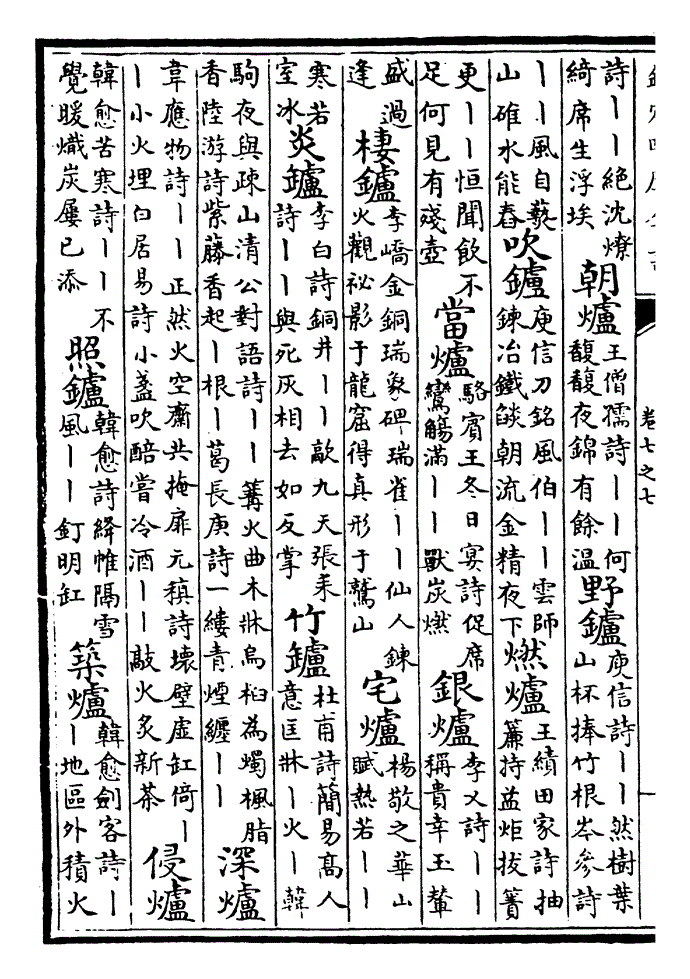 卷七之七
詩丨丨絶沈燎綺席生浮埃 朝爐 王僧孺詩丨丨何馥馥夜錦有餘温 野鑪 庾信詩丨丨然樹葉山杯捧竹根岑參詩
丨丨風自蓺山碓水能舂 吹鑪 庾信刀銘風伯丨丨雲師鍊冶鐵燄朝流金精夜下 燃爐 王績田家詩抽簾持益炬拔簀
更丨丨恒聞飲不足何見有殘壺 當爐 駱賓王冬日宴詩促席鸞觴滿丨丨獸炭燃 銀爐 李乂詩丨丨稱貴幸玉輦
盛過逢 棲鑪 李嶠金銅瑞象碑瑞雀丨丨仙人鍊火觀祕影于龍窟得真形于鷲山 宅爐 楊敬之華山賦熱若丨丨
寒若室冰 炎鑪 李白詩銅井丨丨歊九天張耒詩丨丨與死灰相去如反掌 竹鑪 杜甫詩簡易髙人意匡牀丨火丨韓
駒夜與疎山清公對語詩丨丨篝火曲木牀烏桕為燭楓脂香陸游詩紫藤香起丨根丨葛長庚詩一縷青煙纏丨丨 深爐
韋應物詩丨丨正然火空齋共掩扉元稹詩壊壁虚缸倚丨丨小火埋白居易詩小盞吹醅嘗冷酒丨丨敲火炙新茶 侵爐
韓愈苦寒詩丨丨不覺暖熾炭屢已添 照鑪 韓愈詩絳帷隔雪風丨丨釘明缸 築爐 韓愈劍客詩丨丨地區外積火